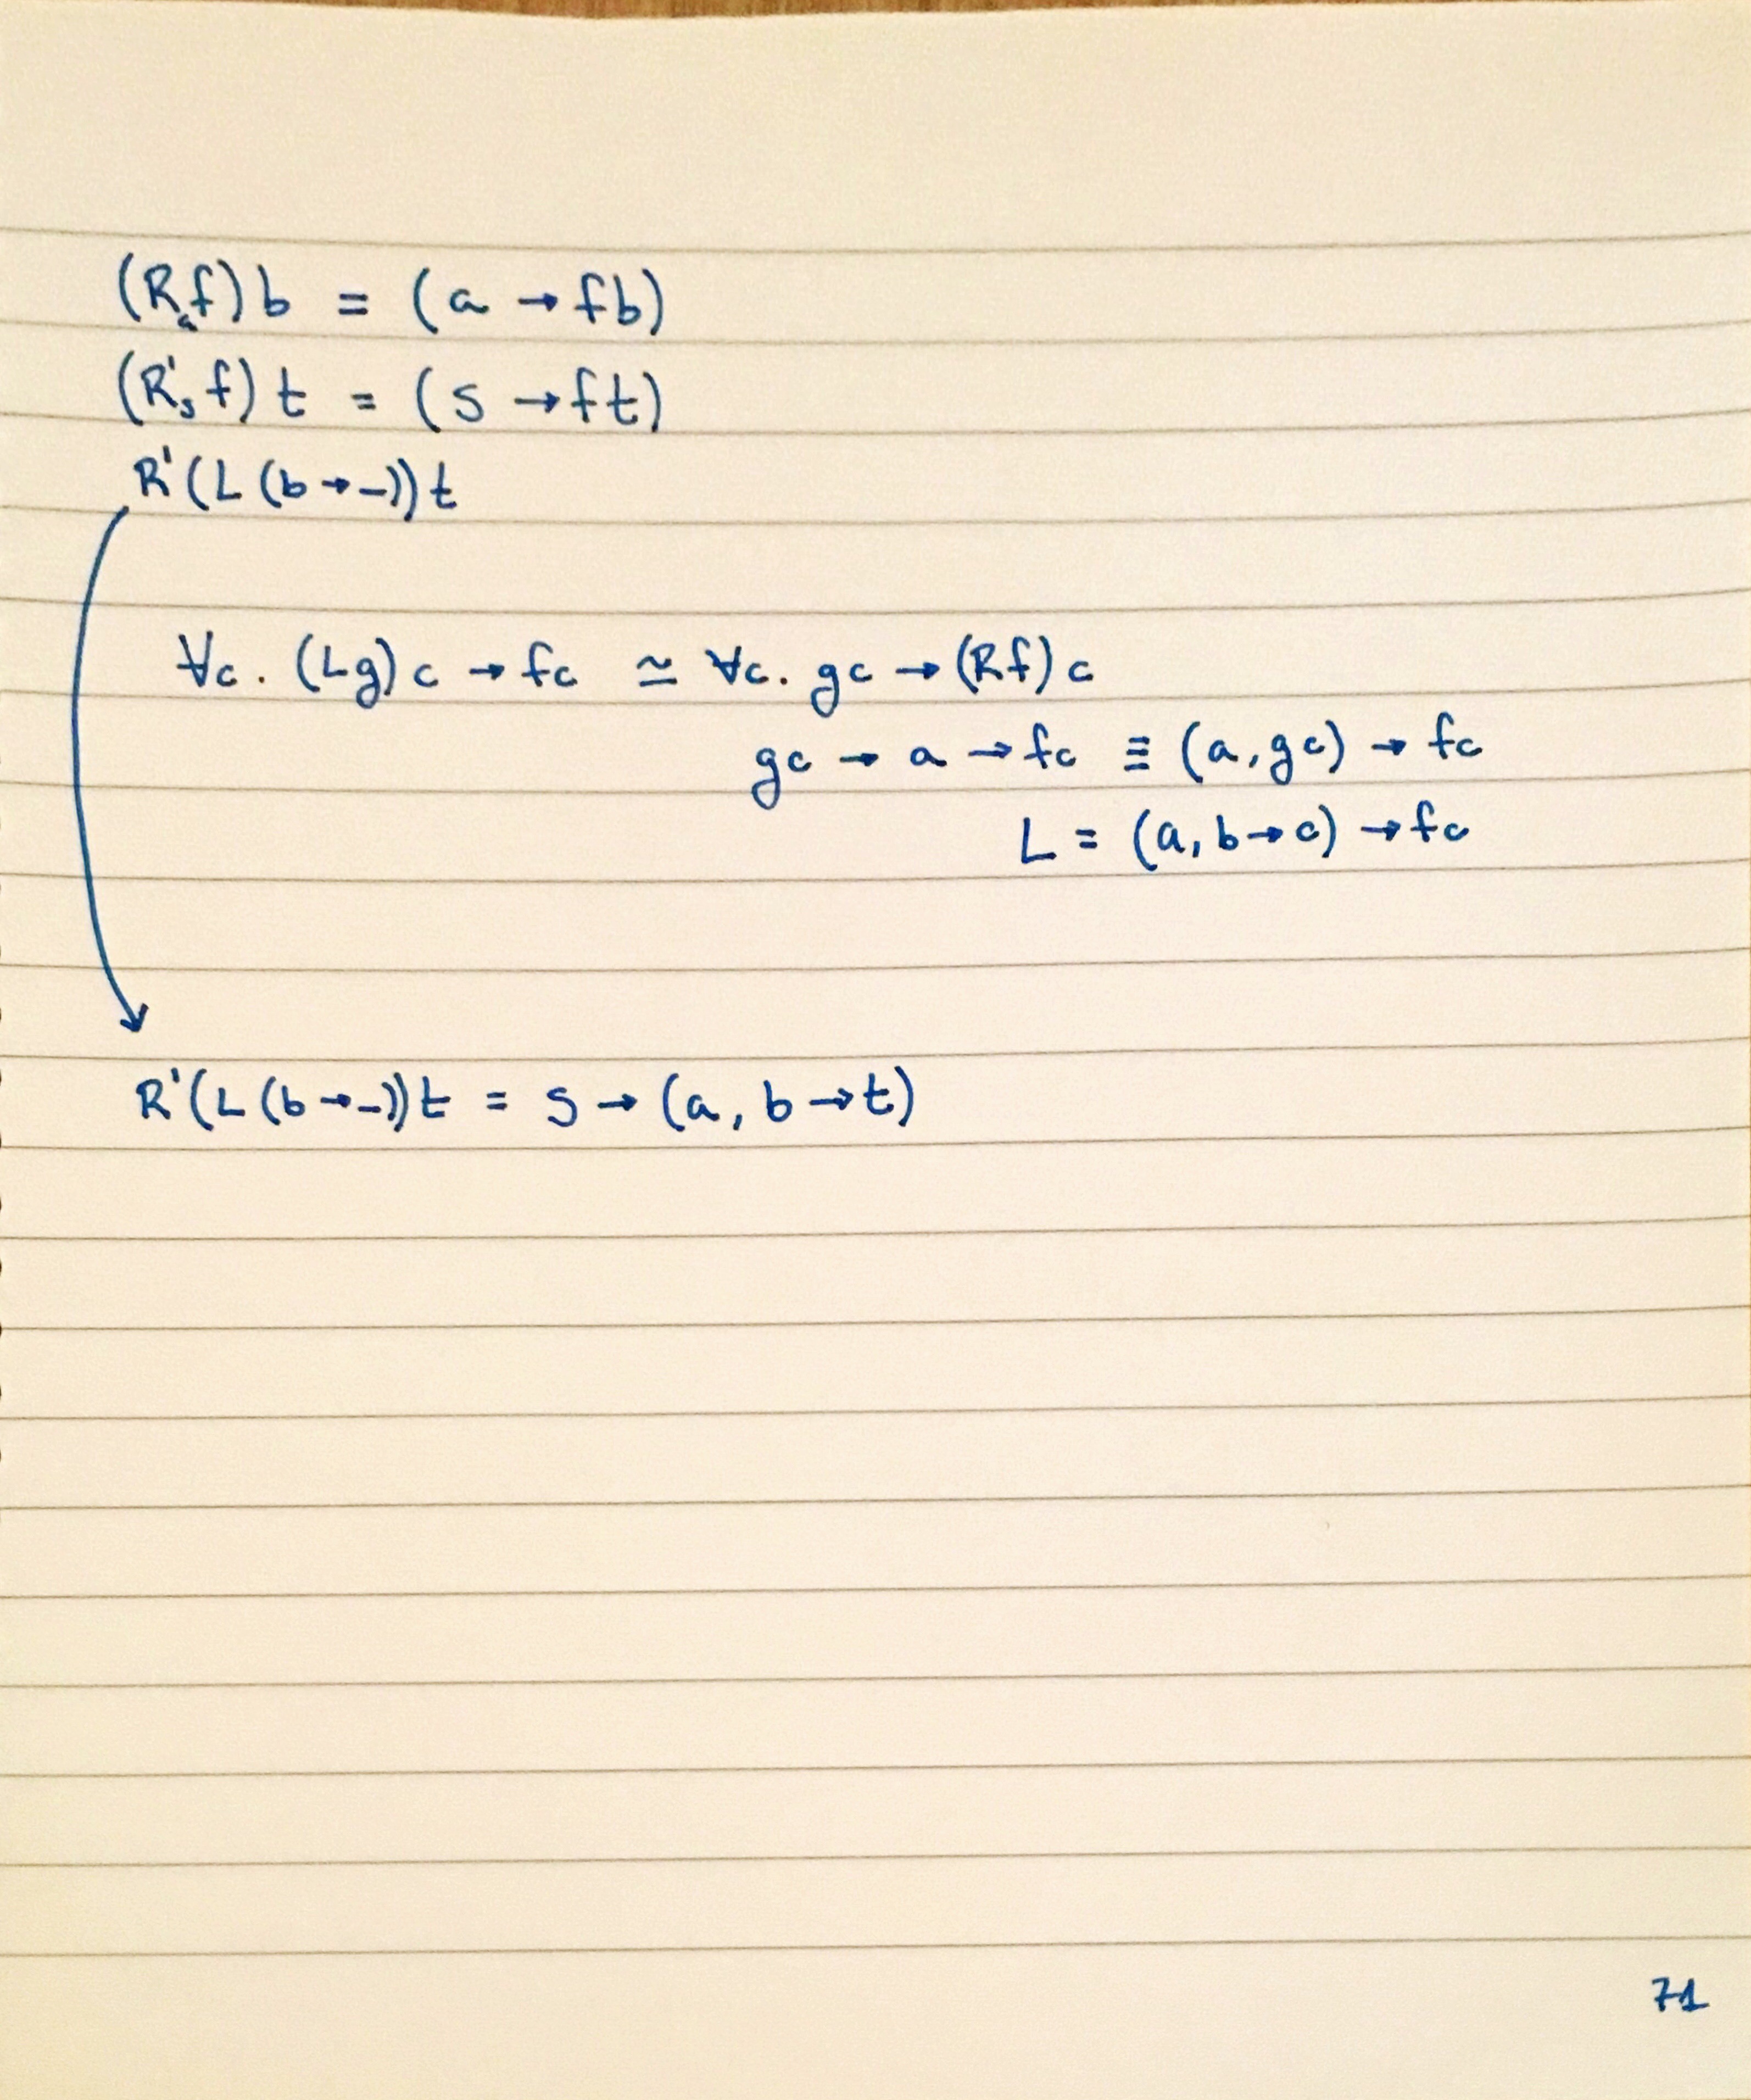 (Rₐf)b = (a → fb)
(R'ₛf)t = (s → ft)
R'(L(b→–))t
∀c. (Lg)c → fc ≃ ∀c. gc → (Rf)c
gc → a → fc ≡ (a, gc) → fc
L = (a, b→c) → fc
R'(L(b→–))t = s → (a, b→t)
71